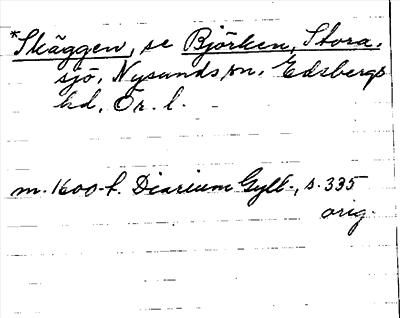 *Skäggen, se Björken, Stora,
sjö, Nysunds sn, Edsbergs
hd, Ör. l.
m. 1600-t. Diarium Gyll-, s. 335
orig.